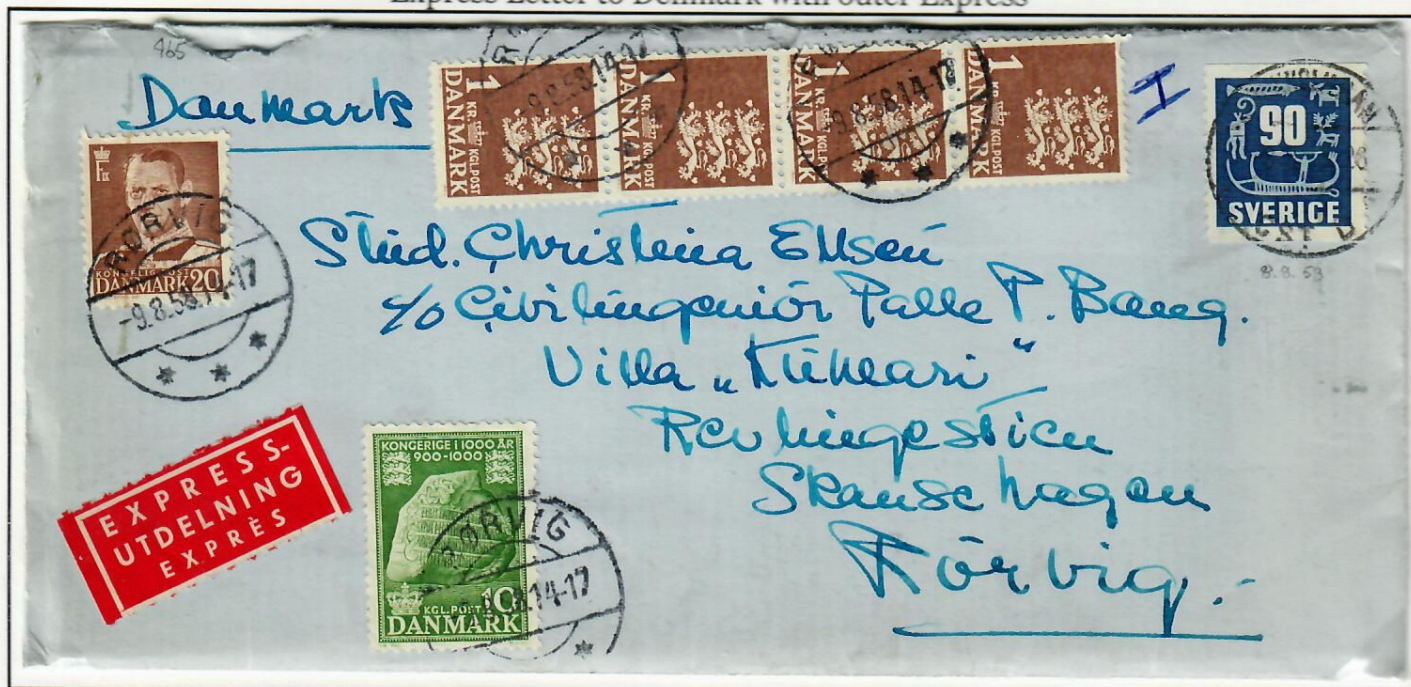 Express Letter to Denmark with outer Express
465
Danmark
1 KR. KGL. POST DANMARK
1 KR. KGL. POST DANMARK
1 KR. KGL. POST DANMARK
1 KR. KGL. POST DANMARK
-9.8.58.14-17
-9.8.58.14-17
I
90
SVERIGE
8.8.58
KONGELIG POST
DANMARK 20
RØRVIG
-9.8.58.14-17
Stud. Christina
c/o Civilingeniör Palle P. Bang.
Villa
Revlingestien
Skansehagen
Rörvig.
EXPRESS-
UTDELNING
EXPRÈS
KONGERIGE I 1000 ÅR
900-1000
KGL. POST. 10
DANMARK
RØRVIG
14-17